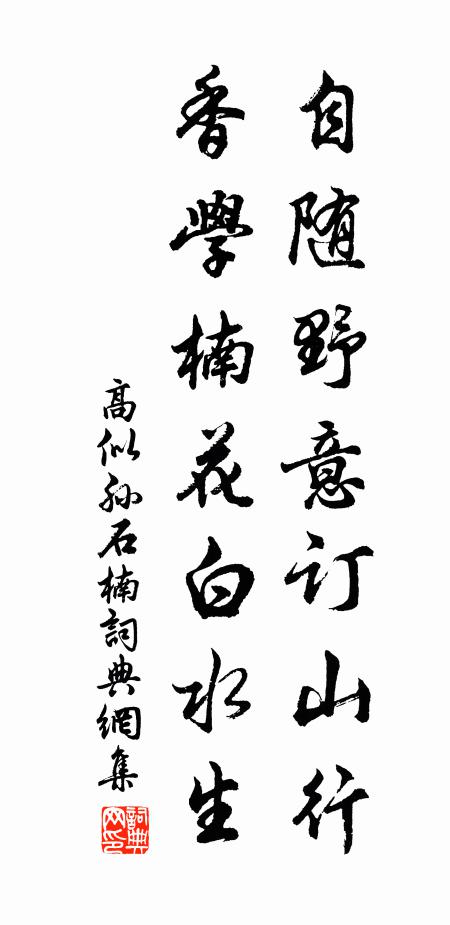 自随野意订山行
香學楠花白水生
高似孙石楠詞典網集
詞典网印